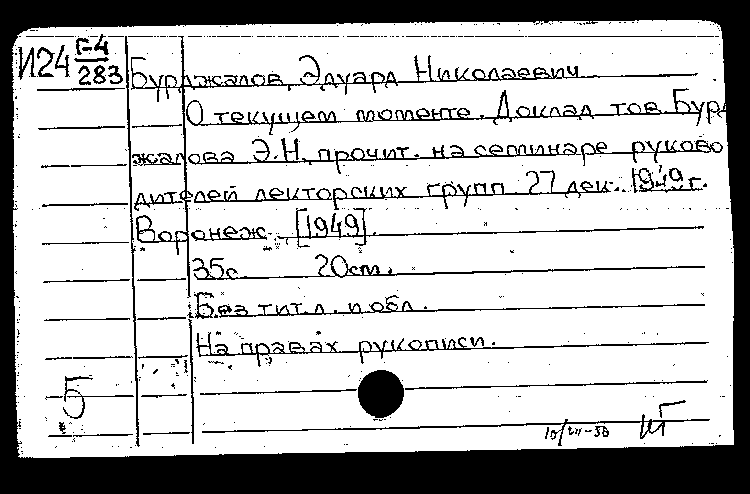 И24 Г-4
283
Бурджалов, Эдуард Николаевич
О текущем моменте. Доклад тов. Бурд
жалова Э.Н., прочит. на семинаре руково
дителей лекторских групп 27 дек. 1949 г.
Воронеж, [1949].
35с. 20см.
Без тит. л. и обл.
На правах рукописи.
5